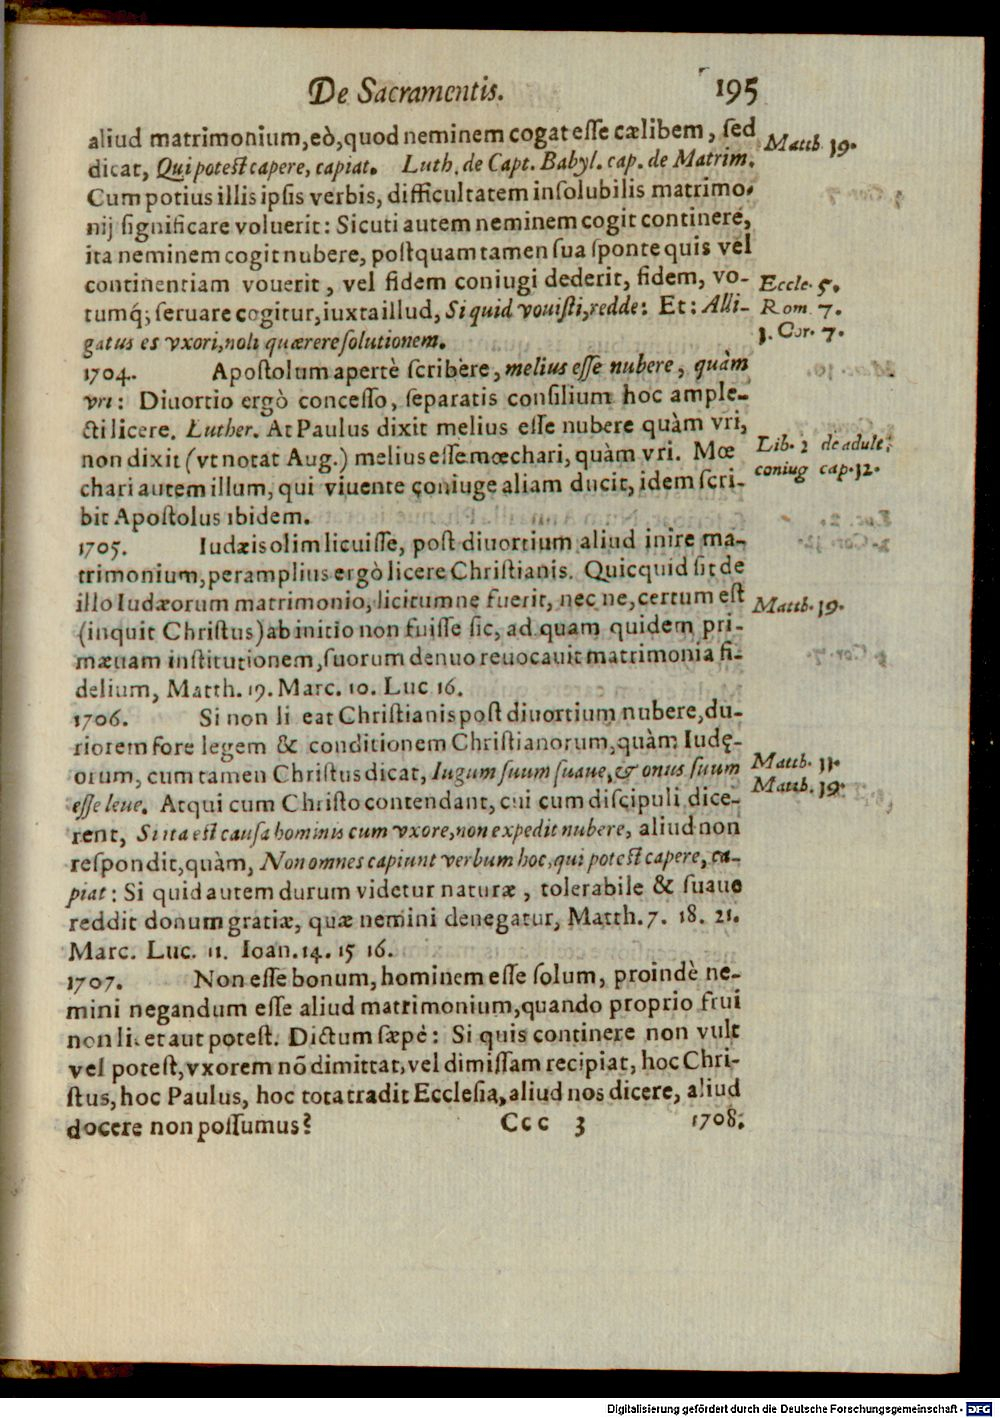 De Sacramentis. 195
aliud matrimonium, eò, quod neminem cogat esse cælibem, sed
Matth. 19.
dicat, Qui potest capere, capiat. Luth. de Capt. Babyl. cap. de Matrim.
Cum potius illis ipsis verbis, difficultatem insolubilis matrimo-
nij significare voluerit: Sicuti autem neminem cogit continere,
ita neminem cogit nubere, postquam tamen sua sponte quis vel
continentiam vouerit, vel fidem coniugi dederit, fidem, vo-
Eccle. 5.
tumq́; seruare cogitur, iuxta illud, Si quid vouisti, redde: Et: Alli-
Rom. 7.
gatus es vxori, noli quærere solutionem.
1. Cor. 7.
1704. Apostolum apertè scribere, melius esse nubere, quàm
vri: Diuortio ergò concesso, separatis consilium hoc ample-
cti licere. Luther. At Paulus dixit melius esse nubere quàm vri,
Lib. 2 de adult:
non dixit (vt notat Aug.) melius esse mœchari, quàm vri. Mœ
coniug cap. 12.
chari autem illum, qui viuente coniuge aliam ducit, idem scri-
bit Apostolus ibidem.
1705. Iudæis olim licuisse, post diuortium aliud inire ma-
trimonium, per amplius ergò licere Christianis. Quicquid sit de
illo Iudæorum matrimonio, licitumne fuerit, nec ne, certum est
Matth. 19.
(inquit Christus) ab initio non fuisse sic, ad quam quidem pri-
mæuam institutionem, suorum denuo reuocauit matrimonia fi-
delium, Matth. 19. Marc. 10. Luc 16.
1706. Si non li eat Christianis post diuortium nubere, du-
riorem fore legem & conditionem Christianorum, quàm Iudę-
orum, cum tamen Christus dicat, Iugum suum suaue, & onus suum
Matth. 11.
esse leue. Atqui cum Christo contendant, cui cum discipuli dice-
Matth. 19.
rent, Si ita est causa hominis cum vxore, non expedit nubere, aliud non
respondit, quàm, Non omnes capiunt verbum hoc, qui potest capere, ca-
piat: Si quid autem durum videtur naturæ, tolerabile & suaue
reddit donum gratiæ, quæ nemini denegatur, Matth. 7. 18. 21.
Marc. Luc. 11. Ioan. 14. 15 16.
1707. Non esse bonum, hominem esse solum, proindè ne-
mini negandum esse aliud matrimonium, quando proprio frui
non licet aut potest. Dictum sæpé: Si quis continere non vult
vel potest, vxorem nō dimittat, vel dimissam recipiat, hoc Chri-
stus, hoc Paulus, hoc tota tradit Ecclesia, aliud nos dicere, aliud
docere non possumus? Ccc 3 1708.
Digitalisierung gefördert durch die Deutsche Forschungsgemeinschaft - DFG